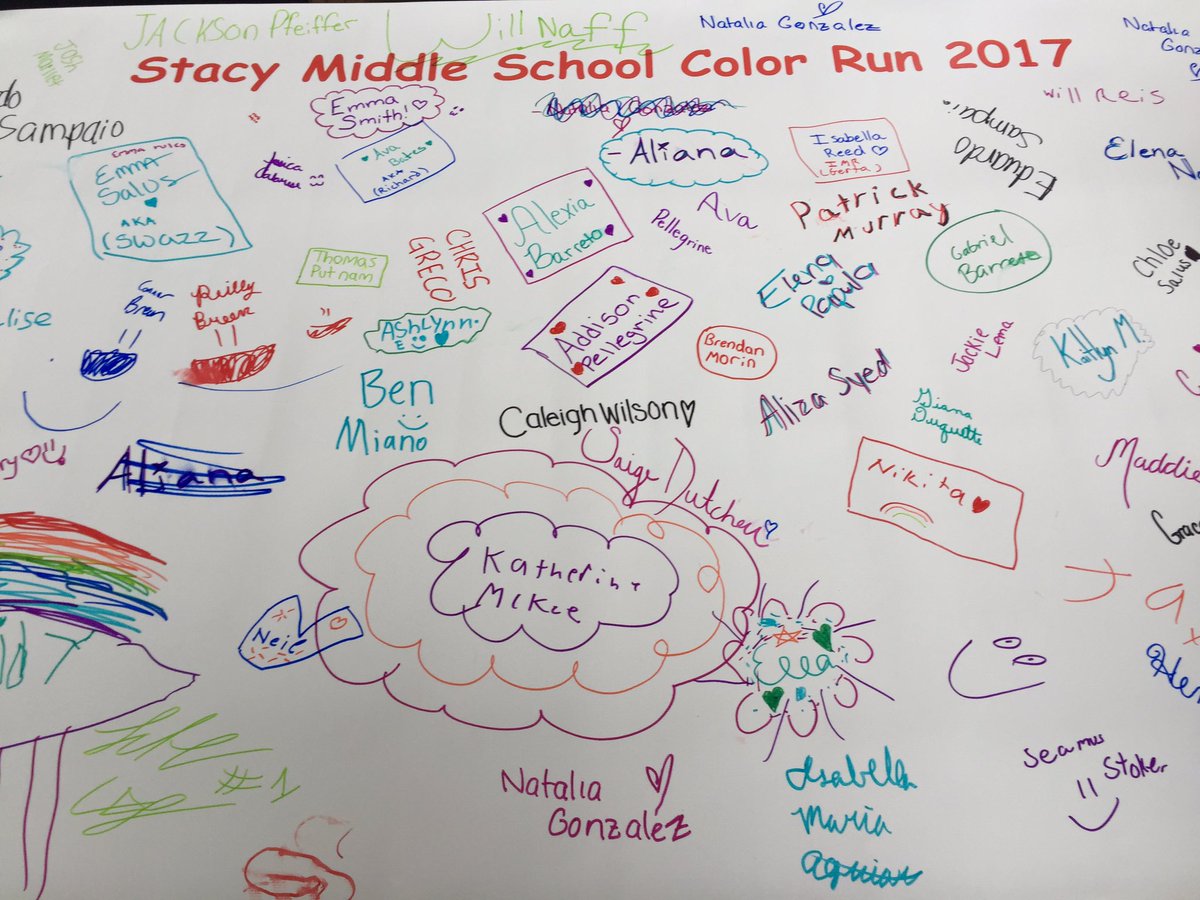 JACKSON Pfeiffer
Will Naff
Natalia Gonzalez
Natalia
Gonz
Josh
Stacy Middle School Color Run 2017
do
Sampaio
Emma
Smith!
Natalia Gonzalez
will Reis
EMMA
Salus
AKA
(SWAZZ)
Ava
Bates
AKA
(Richard)
-Aliana
Isabella
Reed
IMR
(Gerta)
Eduardo
Sampaio
Elena
Alexia
Barreto
Ava
Pellegrine
Patrick
Murray
Gabriel
Barreto
Chloe
Salus
Thomas
Putnam
CHRIS
GRECO
Elena
Papula
lise
Breen
Reilly
Breen
AShLYnn.
E
Addison
Pellegrine
Brendan
Morin
Jackie
Lema
Kaitlyn M.
Ben
Miano
Caleigh Wilson
Aliza Syed
Giana
Duquette
ry
Aliana
Saige Dutcher
Nikita
Maddie
Grac
Katherine
McKie
Neic
Ella
#1
Natalia
Gonzalez
Isabella
Maria
Seamus
Stoker